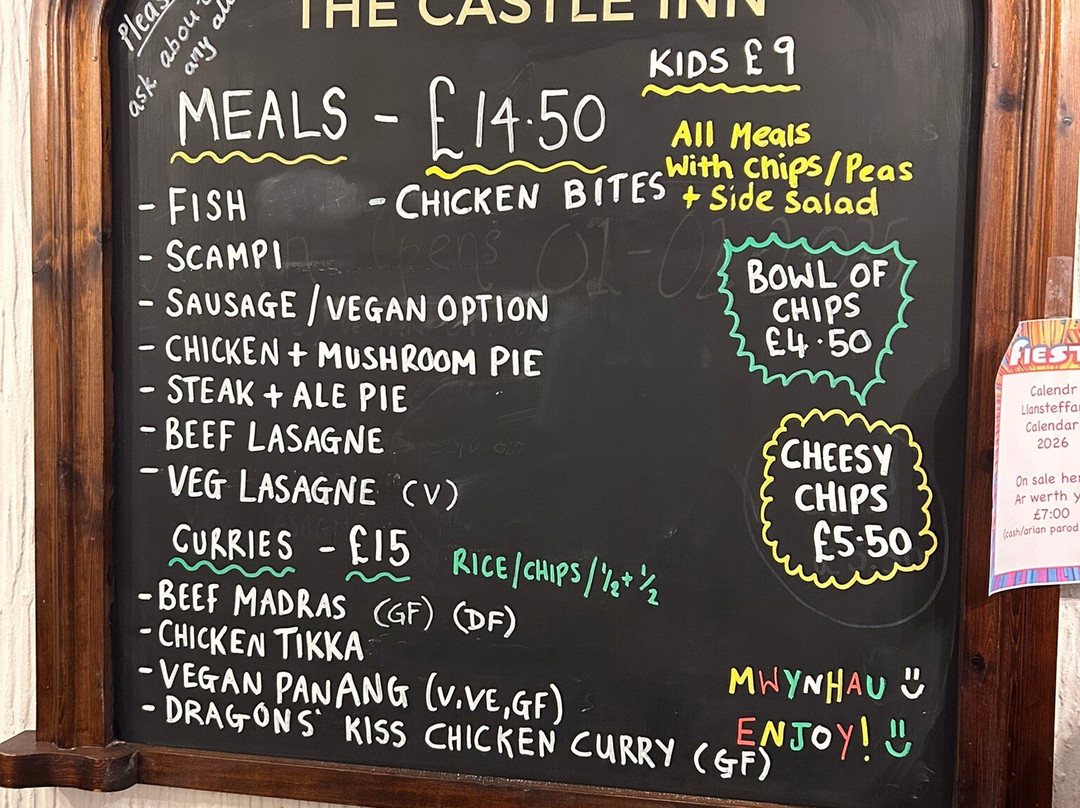 THE CASTLE INN
Please
ask about
any
KIDS £9
MEALS - £14.50
All Meals
With Chips/Peas
+ Side Salad
- FISH
- CHICKEN BITES
- SCAMPI
- SAUSAGE / VEGAN OPTION
- CHICKEN + MUSHROOM PIE
- STEAK + ALE PIE
- BEEF LASAGNE
- VEG LASAGNE (V)
BOWL OF
CHIPS
£4.50
CHEESY
CHIPS
£5.50
CURRIES - £15
RICE/CHIPS/½+½
- BEEF MADRAS (GF) (DF)
- CHICKEN TIKKA
- VEGAN PANANG (V,VE,GF)
- DRAGONS' KISS CHICKEN CURRY (GF)
MWYNHAU
ENJOY!
FIEST
Calendr
Llansteffa
Calendar
2026
On sale he
Ar werth y
£7:00
(cash/arian parod